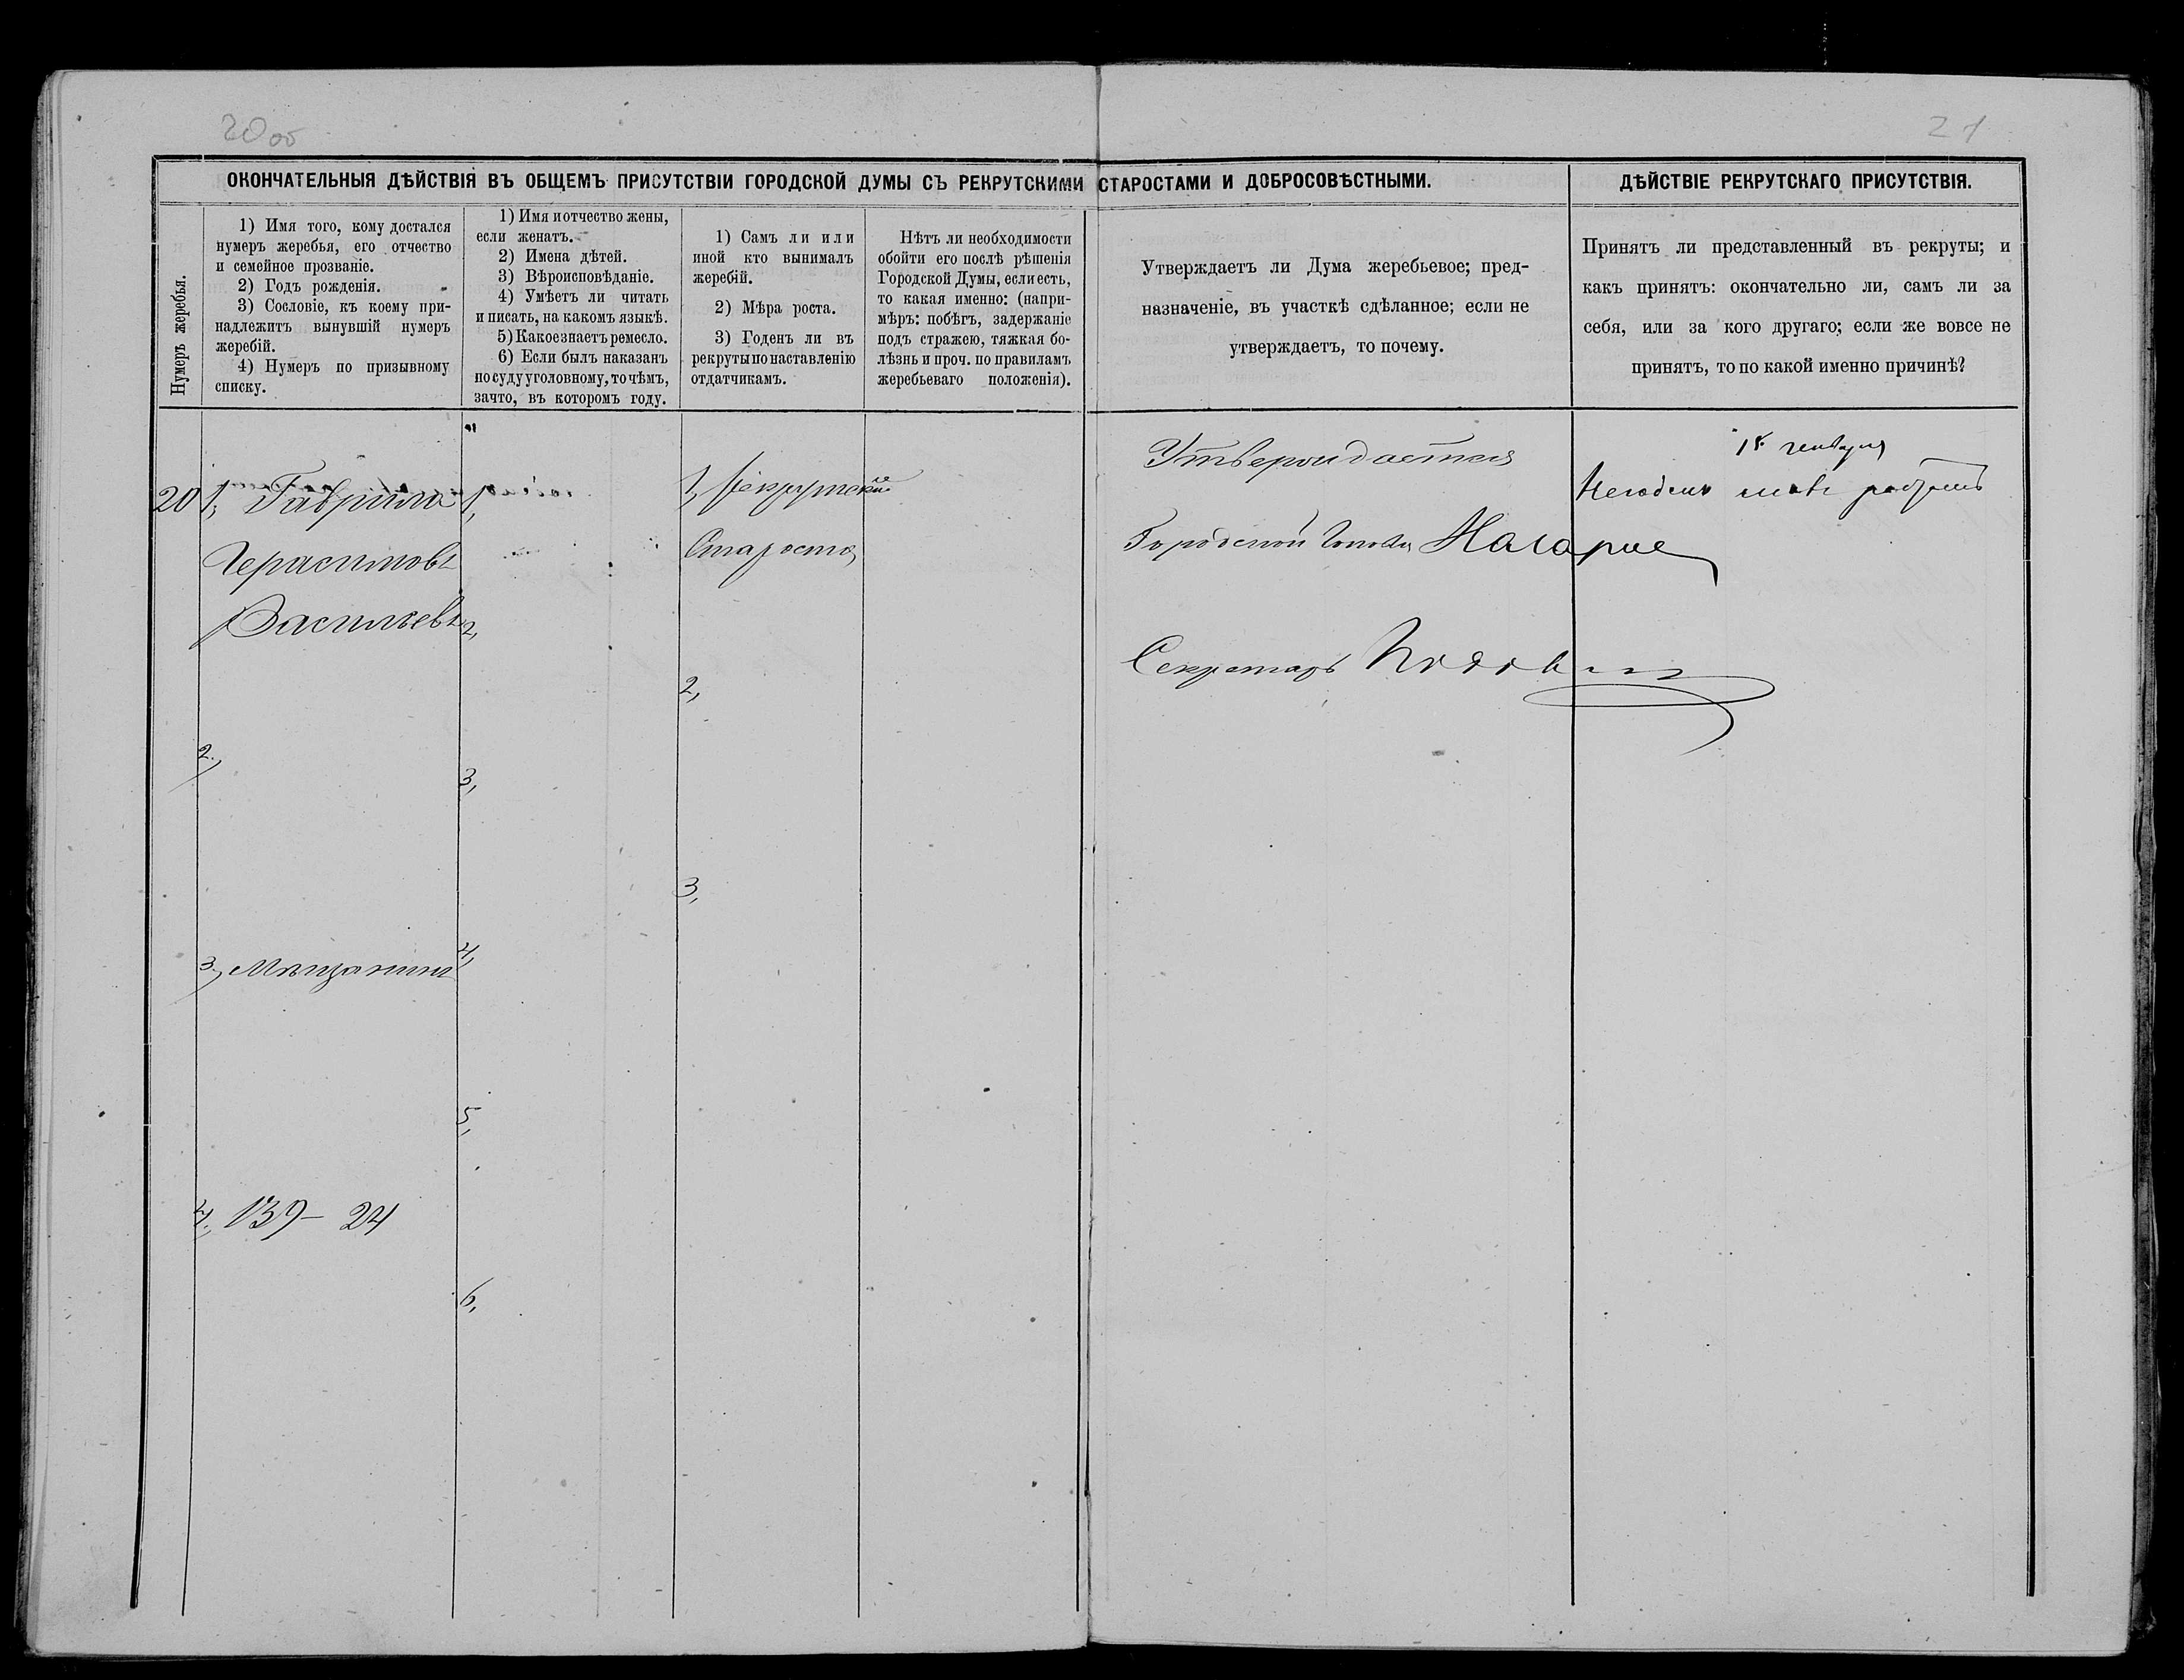 20 об
21
ОКОНЧАТЕЛЬНЫЯ ДѢЙСТВІЯ ВЪ ОБЩЕМЪ ПРИСУТСТВІИ ГОРОДСКОЙ ДУМЫ СЪ РЕКРУТСКИМИ СТАРОСТАМИ И ДОБРОСОВѢСТНЫМИ.
ДѢЙСТВІЕ РЕКРУТСКАГО ПРИСУТСТВІЯ.
Нумеръ жеребья.
1) Имя того, кому достался
нумеръ жеребья, его отчество
и семейное прозваніе.
2) Годъ рожденія.
3) Сословіе, къ коему при-
надлежитъ вынувшій нумеръ
жеребій.
4) Нумеръ по призывному
списку.
1) Имя и отчество жены,
если женатъ.
2) Имена дѣтей.
3) Вѣроисповѣданіе.
4) Умѣетъ ли читать
и писать, на какомъ языкѣ.
5) Какое знаетъ ремесло.
6) Если былъ наказанъ
по суду уголовному, то чѣмъ,
за что, въ которомъ году.
1) Самъ ли или
иной кто вынималъ
жеребій.
2) Мѣра роста.
3) Годенъ ли въ
рекруты по наставленію
отдатчикамъ.
Нѣтъ ли необходимости
обойти его послѣ рѣшенія
Городской Думы, если есть,
то какая именно: (напри-
мѣръ: побѣгъ, задержаніе
подъ стражею, тяжкая бо-
лѣзнь и проч. по правиламъ
жеребьеваго положенія).
Утверждаетъ ли Дума жеребьевое; пред-
назначеніе, въ участкѣ сдѣланное; если не
утверждаетъ, то почему.
Принятъ ли представленный въ рекруты; и
какъ принятъ: окончательно ли, самъ ли за
себя, или за кого другаго; если же вовсе не
принятъ, то по какой именно причинѣ?
20
1, Гаврило
Герасимовъ
Васильевъ
2,
3, Мѣщанинъ
4, 139 - 24
1,
2,
3,
4,
5,
6,
1, Рекрутскій
Староста
2,
3,
Утверждается
Городской Голова
Секретарь
18 генваря